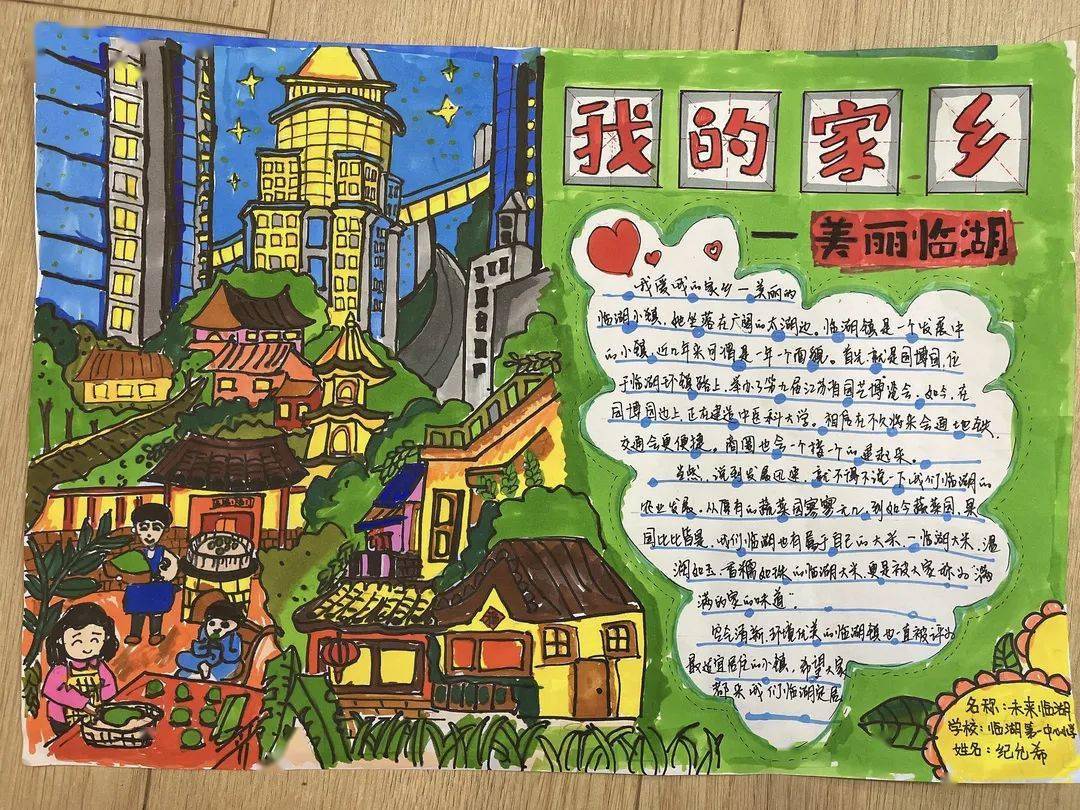 我的家乡
一美丽临湖
我爱我的家乡一美丽的
临湖小镇，她坐落在广阔的太湖边，临湖镇是一个发展中
的小镇，近几年来可谓是一年一个面貌。首先就是园博园，位
于临湖环镇路上，举办了第九届江苏省园艺博览会，如今，在
园博园边上正在建造中医科大学，相信在不久将来会通上地铁，
交通会更便捷。商圈也会一个接一个的建起来。
当然，说到发展迅速，就不得不说一下我们临湖的
农业发展，从原有的蔬菜园寥寥无几，到如今蔬菜园，果
园比比皆是，我们临湖也有属于自己的大米一临湖大米，温
润如玉，香糯如珠的临湖大米，更是被大家称为"满
满的家的味道"
空气清新，环境优美的临湖镇也一直被评为
最适宜居住的小镇，希望大家
都来我们临湖定居
名称：未来临湖
学校：临湖第一中心小学
姓名：纪允希